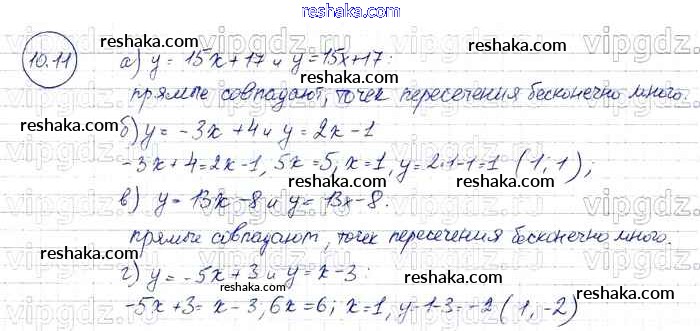 reshaka.com
10.11
reshaka.com reshaka.com
а) y = 15x + 17 и y = 15x + 17:
reshaka.com
прямые совпадают, точек пересечения бесконечно много.
reshaka.com reshaka.com
б) y = -3x + 4 и y = 2x - 1
-3x + 4 = 2x - 1, 5x = 5, x = 1, y = 2·1 - 1 = 1 (1; 1);
reshaka.com
в) y = 13x - 8 и y = 13x - 8.
reshaka.com reshaka.com
прямые совпадают, точек пересечения бесконечно много.
reshaka.com
г) y = -5x + 3 и y = x - 3:
reshaka.com reshaka.com
-5x + 3 = x - 3, 6x = 6; x = 1, y = 1 - 3 = -2 (1, -2)
reshaka.com
vipgdz.com vipgdz.com vipgdz.com